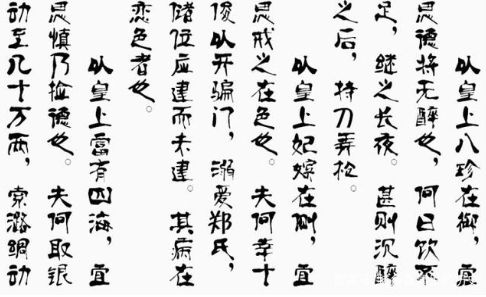 以皇上八珍在御，宜
思德将无醉也，何日饮不
足，继之长夜。甚则沉醉
之后，持刀弄枪。
以皇上妃嫔在侧，宜
思戒之在色也。夫何幸十
俊以开骗门，溺爱郑氏，
储位应建而未建。其病在
恋色者也。
以皇上富有四海，宜
思慎乃俭德也。夫何取银
动至几十万两，索潞绸动